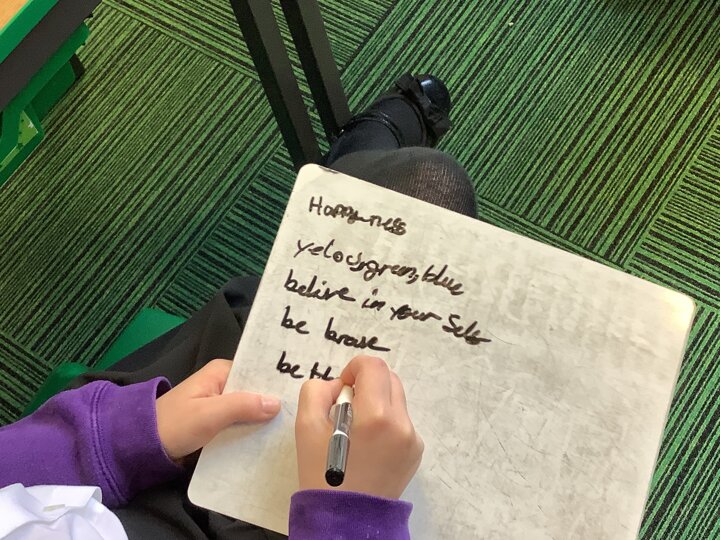 Happyness
yelow,green,blue
belive in your Self
be brave
be